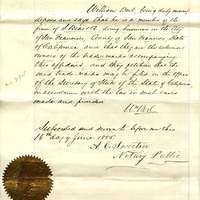 William Bert, being duly sworn
deposes and says that he is a member of the
firm of & Co, doing business in the City
of San Francisco, County of San Francisco State
of California and that they are the
owners of the trade-marks accompanying
this affidavit and they petition that
said trade marks may be filed in the office
of the Secretary of State of the State of California
in accordance with the law in such cases
made and provided
Subscribed and sworn to before me this
16th day of June 1885
Notary Public